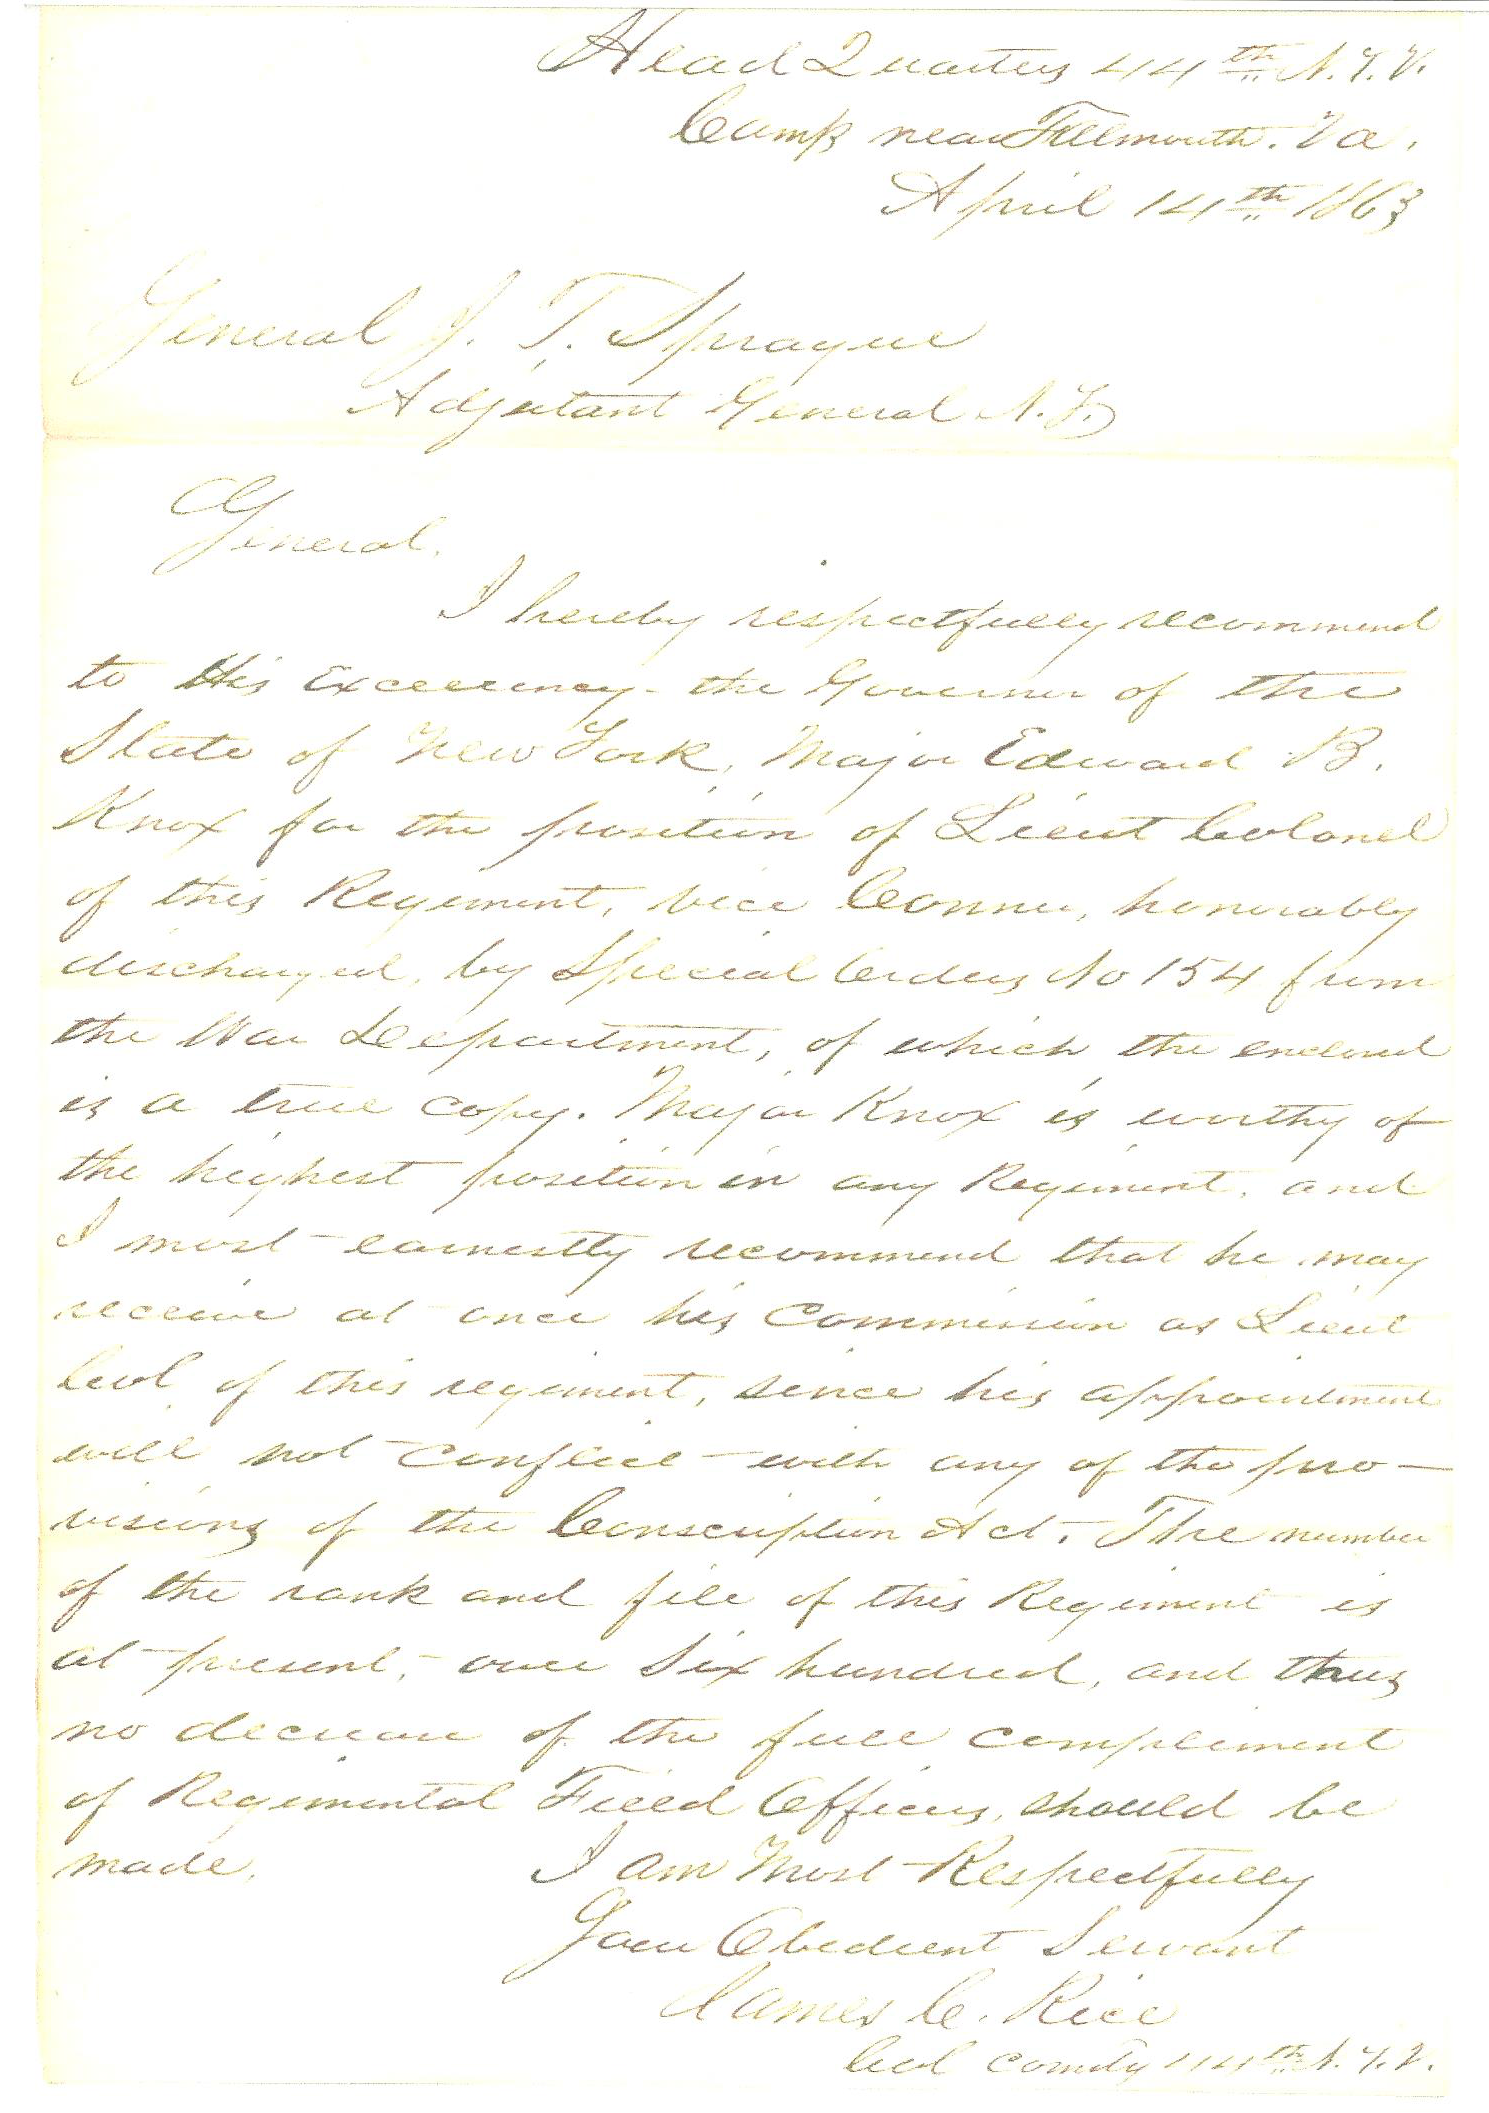 Head Quarters 44th N.Y.V.
Camp near Fallmouth. Va.
April 14th 1863
General J. T. Sprague
Adjutant General N.Y.
General.
I hereby respectfully recommend
to His Excellency - the Governor of the
State of New York, Major Edward B.
Knox for the position of Lieut Colonel
of this Regiment, vice Conner, honorably
discharged, by Special Orders No 154 from
the War Department, of which the enclosed
is a true copy. Major Knox is worthy of
the highest position in any Regiment, and
I most earnestly recommend that he may
receive at once his commission as Lieut
Col of this regiment, since his appointment
will not conflict with any of the pro-
visions of the Conscription Act. The number
of the rank and file of this Regiment is
at present, over six hundred, and thus
no decrease of the full compliment
of Regimental Field Officers, should be
made. I am Most Respectfully
Your Obedient Servant
James C. Rice
Col comdg 44th N.Y.V.